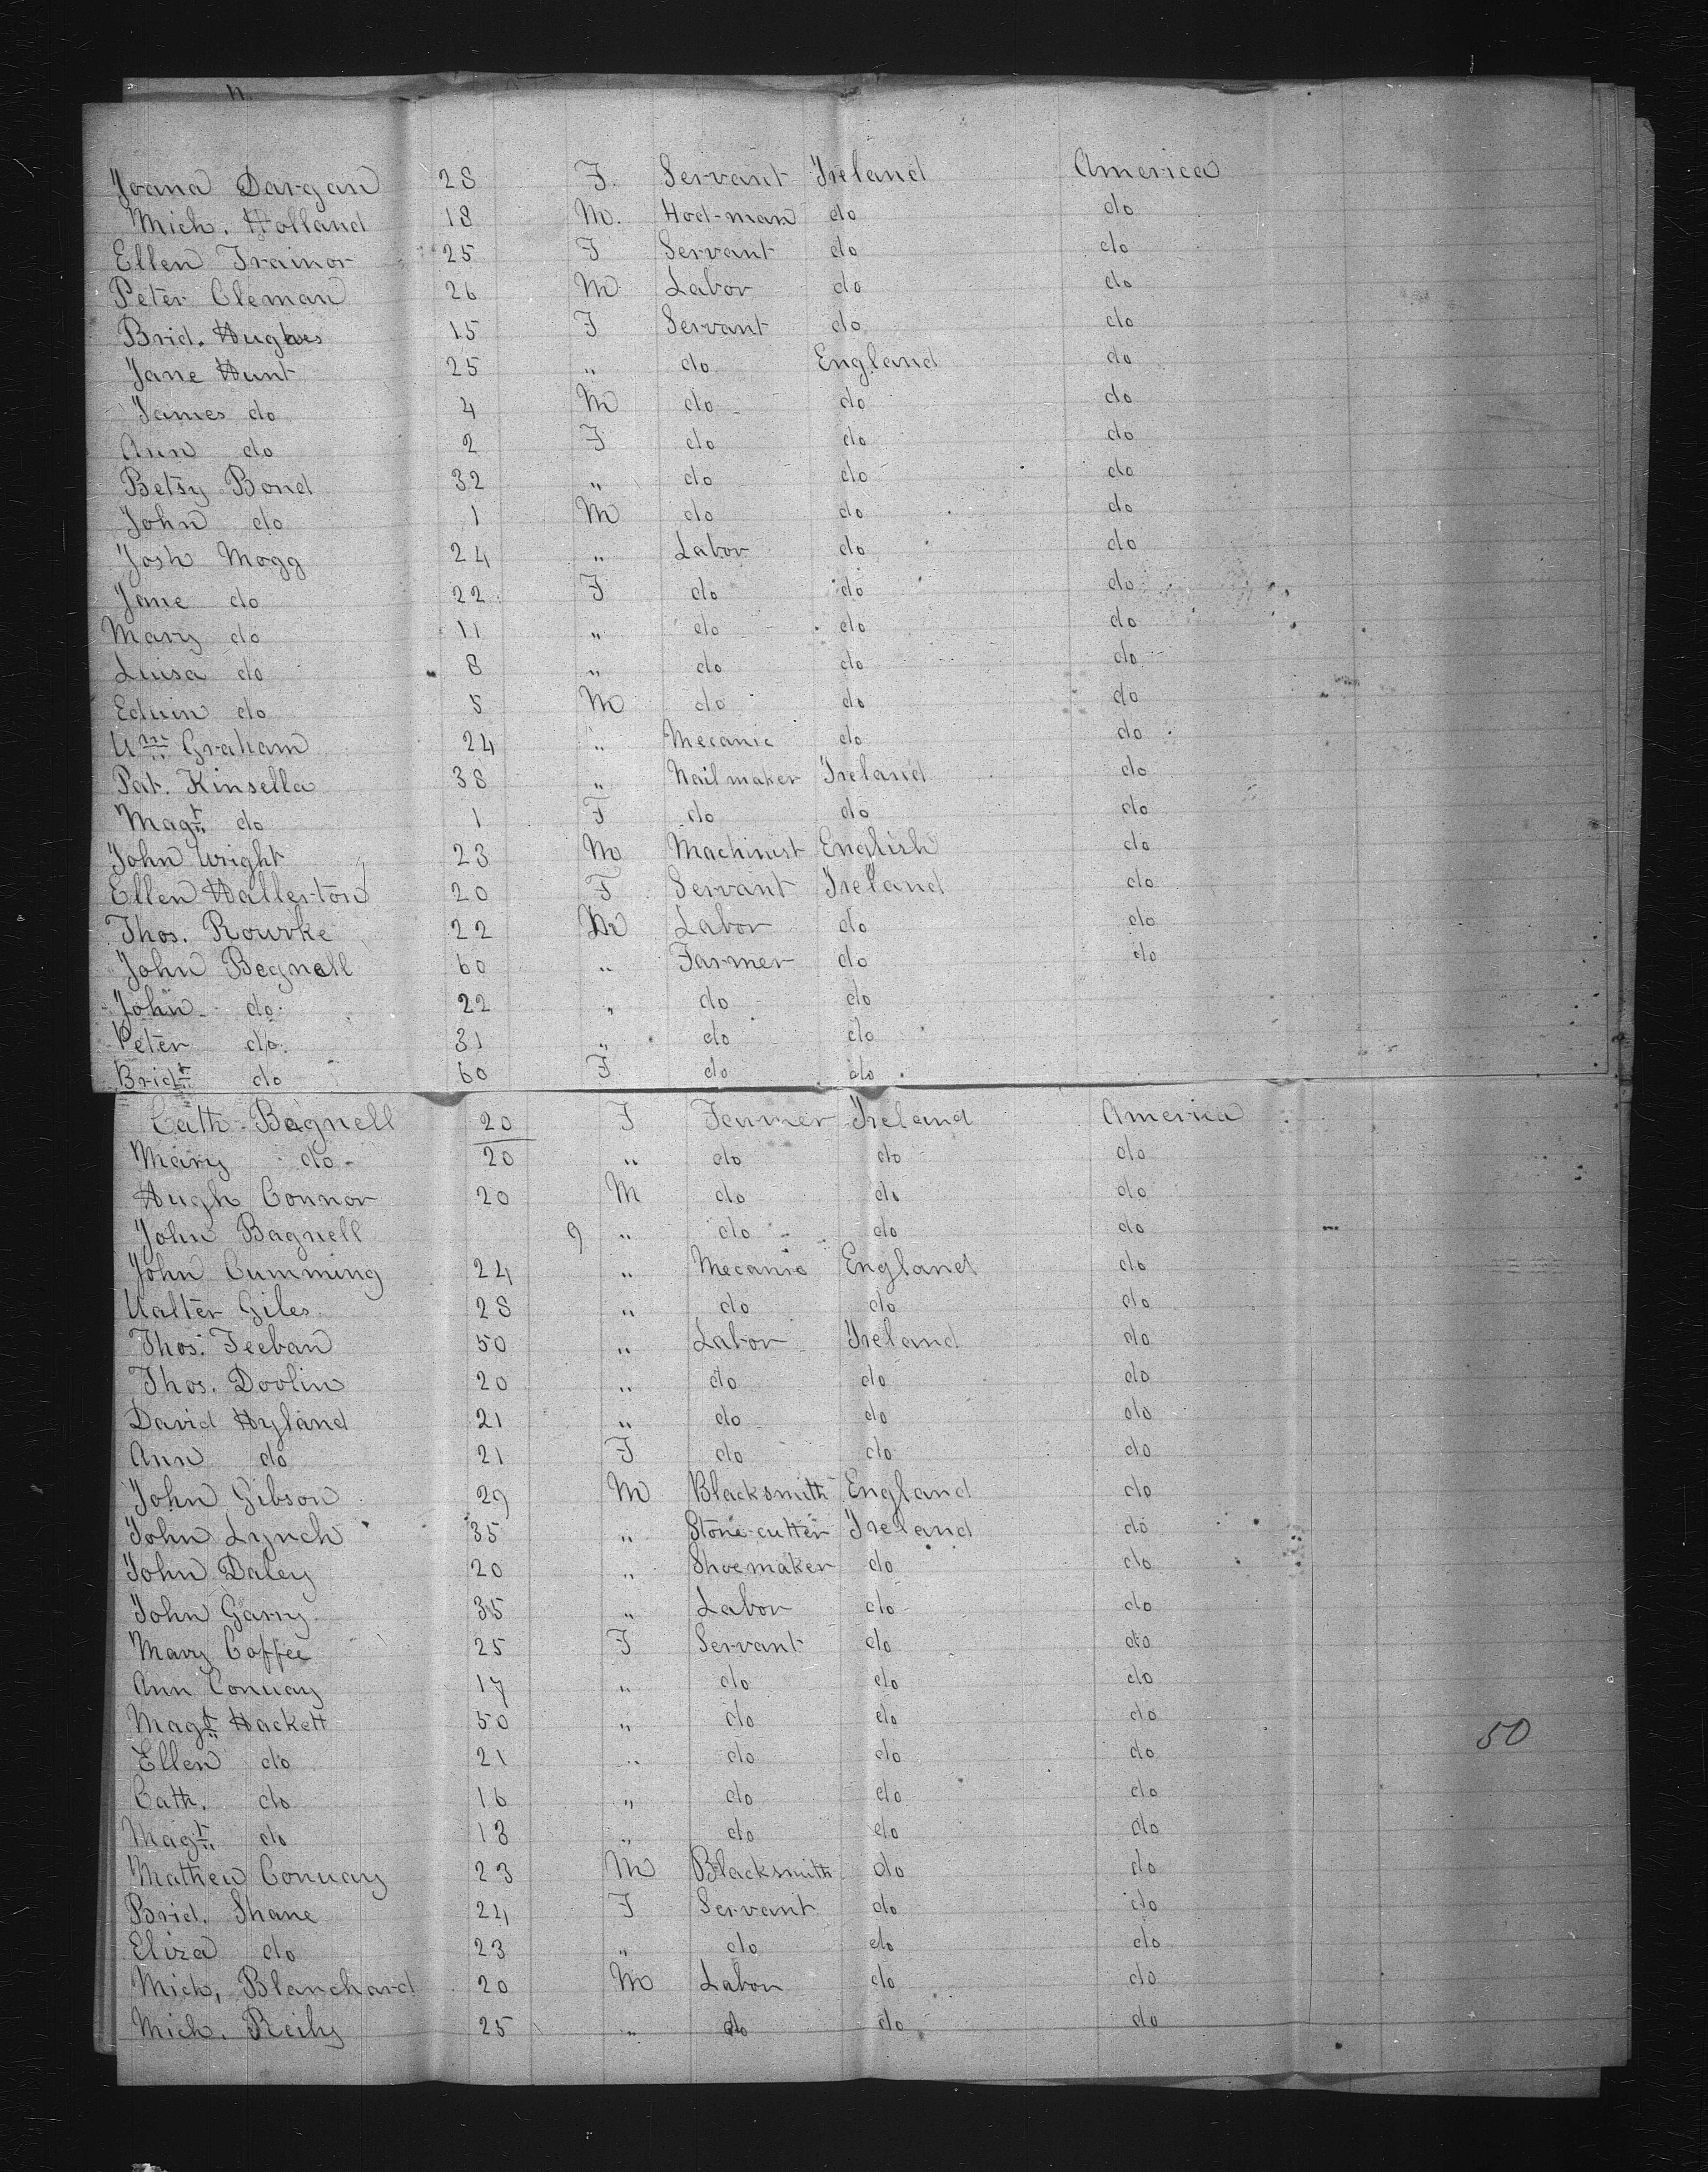 Joana Dargan 28 F. Servant Ireland America
Mich. Holland 18 M. Hod-man do do
Ellen Trainor 25 F Servant do do
Peter Cleman 26 M Labor do do
Brid. Hughes 15 F Servant do do
Jane Hunt 25 " do England do
James do 4 M do do do
Ann do 2 F do do do
Betsy Bond 32 " do do do
John do 1 M do do do
Josh Mogg 24 " Labor do do
Jane do 22 F do do do
Mary do 11 " do do do
Luisa do 8 " do do do
Eduin do 5 M do do do
Wm Graham 24 " Mecanic do do
Pat. Kinsella 38 " Nailmaker Ireland do
Magt do 1 F do do do
John Wright 23 M Machinist English do
Ellen Hallerton 20 F Servant Ireland do
Thos. Rourke 22 M Labor do do
John Begnell 60 " Farmer do do
John do. 22 " do do
Peter do. 31 " do do
Bridt do 60 F do do
Cath. Bagnell 20 F Farmer Ireland America
Mary do 20 " do do do
Hugh Connor 20 M do do do
John Bagnell 9 " do do do
John Cumming 24 " Mecanic England do
Walter Giles 28 " do do do
Thos. Feeban 50 " Labor Ireland do
Thos. Doolin 20 " do do do
David Hyland 21 " do do do
Ann do 21 F do do do
John Gibson 29 M Blacksmith England do
John Lynch 35 " Stone-cutter Ireland do
John Daley 20 " Shoemaker do do
John Garry 35 " Labor do do
Mary Coffee 25 F Servant do do
Ann Conway 17 " do do do
Magt Hackett 50 " do do do 50
Ellen do 21 " do do do
Cath. do 16 " do do do
Magt do 13 " do do do
Mathew Conway 23 M Blacksmith do do
Brid. Shane 24 F Servant do do
Eliza do 23 " do do do
Mich. Blanchard 20 M Labor do do
Mich. Reily 25 " do do do